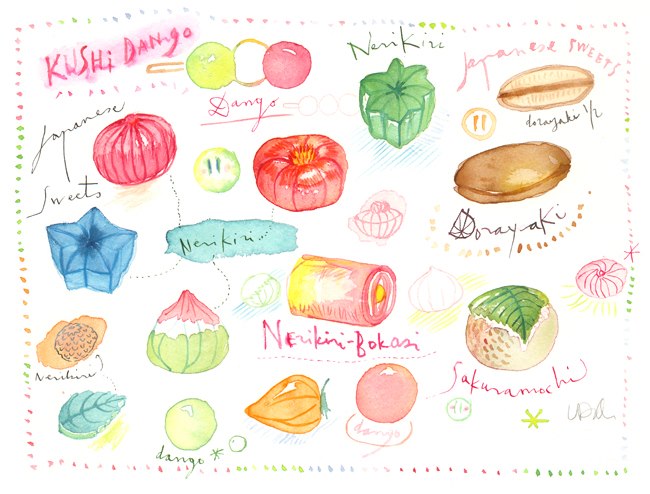 KUSHi DANgo
Nerikiri
Japanese SWEETS
Dango
dorayaki 1/2
Japanese
Sweets
Doray-aki
Nerikiri
Nerikiri-Bokasi
Sakuramochi
dango *
dango